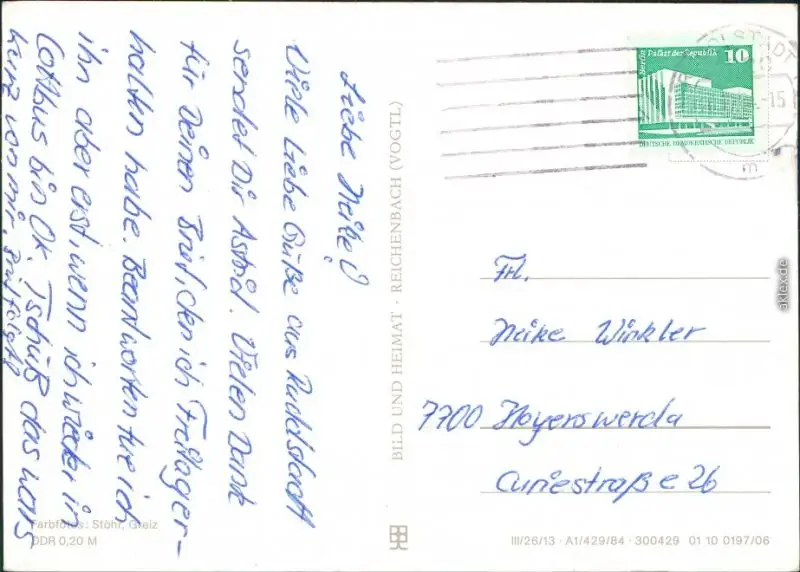 Liebe Heike!
Viele Liebe Grüße aus Rudolstadt
sendet Dir Astrid. Vielen Dank
für Deinen Brief, den ich Freitag er-
halten habe. Beantworten tue ich
ihn aber erst, wenn ich wieder in
Cottbus bin OK. Tschüß das wars
kurz von mir, Brief folgt!
BILD UND HEIMAT · REICHENBACH (VOGTL)
Farbfotos: Stöhr, Greiz
DDR 0,20 M
Berlin Palast der Republik 10
DEUTSCHE DEMOKRATISCHE REPUBLIK
-15
m
Frl.
Heike Winkler
7700 Hoyerswerda
Curiestraße 26
III/26/13 · A1/429/84 · 300429 01 10 0197/06
akpool.de